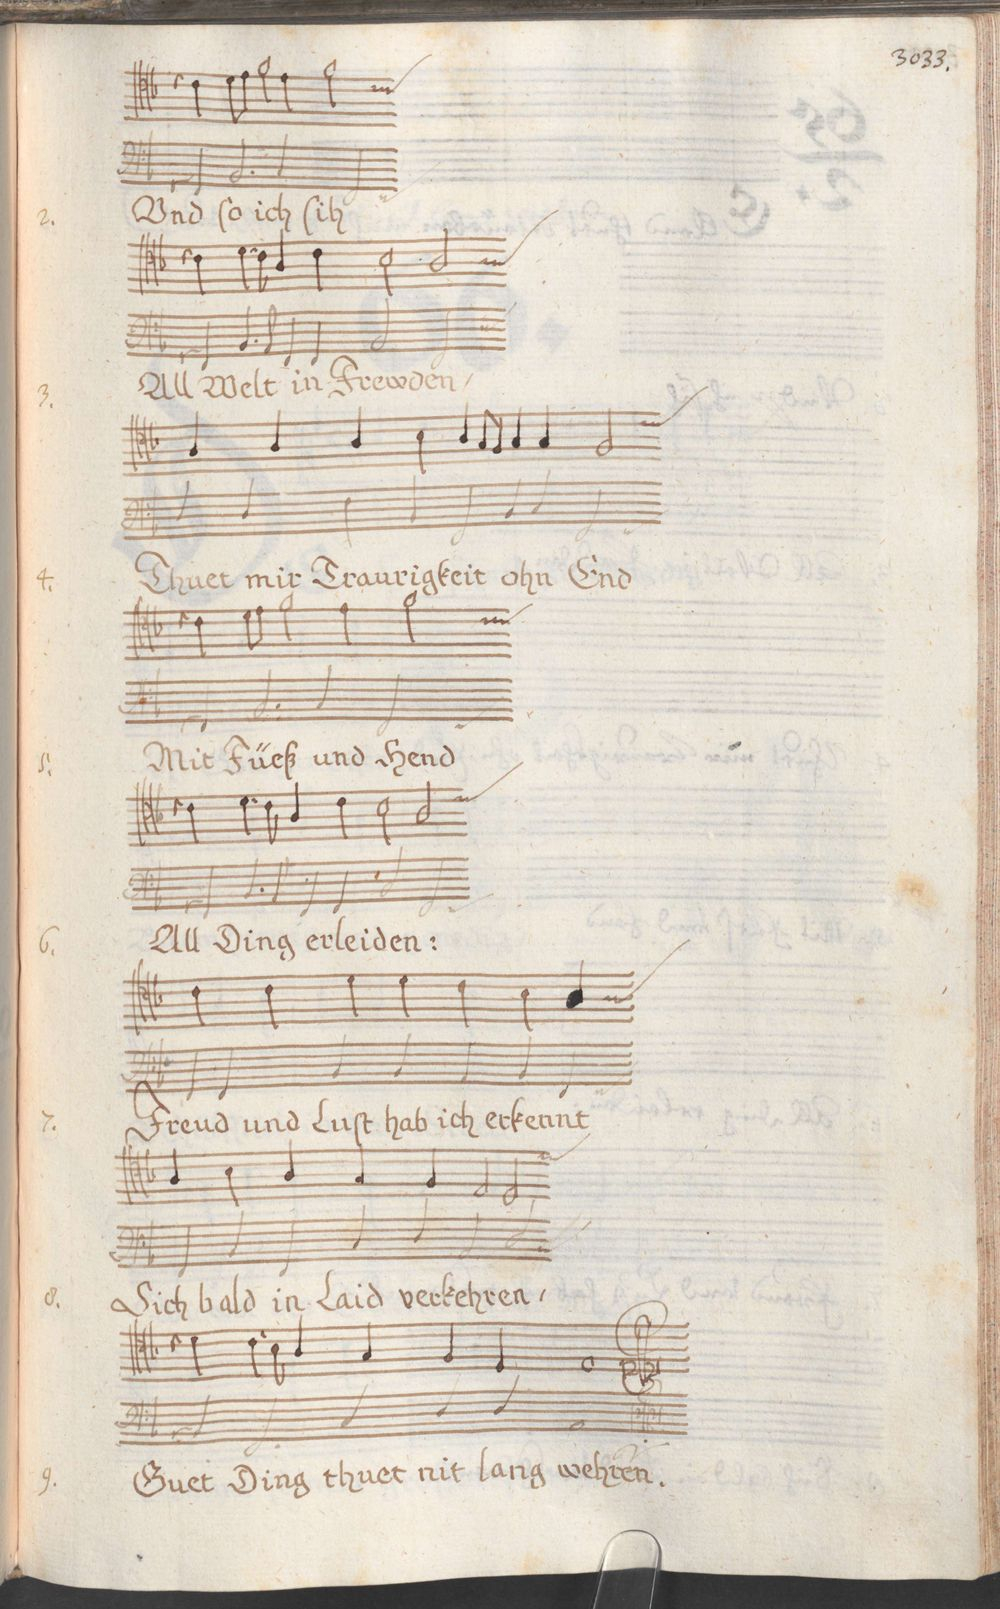 3033.
2. Vnd so ich sih
3. All Welt in Frewden /
4. Thuet mir Traurigkeit ohn End
5. Mit Füeß und Hend
6. All Ding erleiden:
7. Freud und Lust hab ich erkennt
8. Sich bald in Laid verkehren /
9. Guet Ding thuet nit lang wehren.